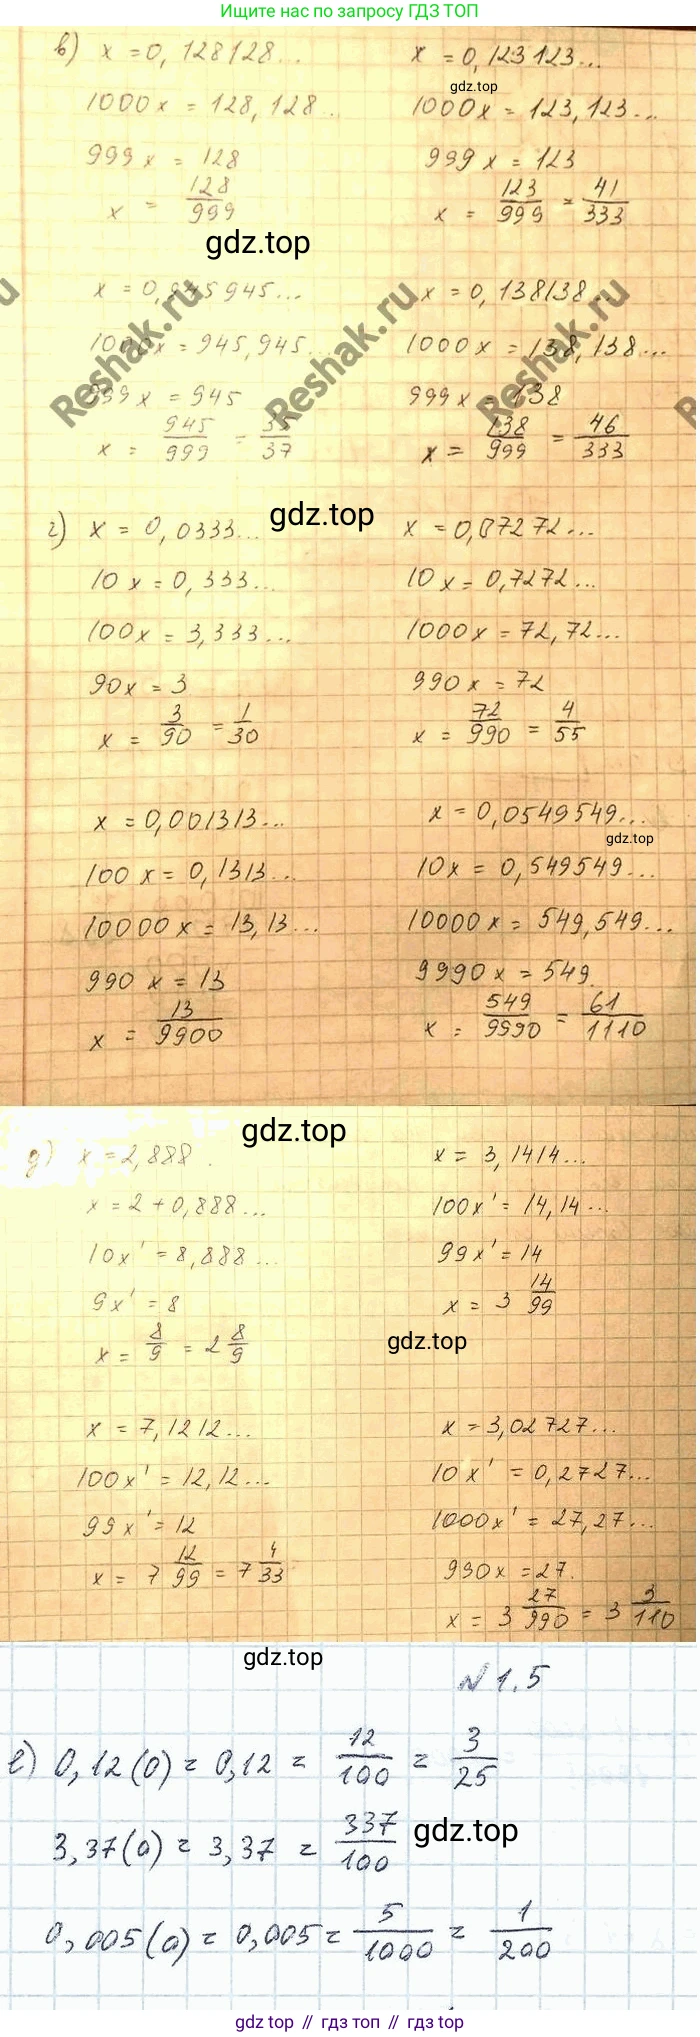 Ищите нас по запросу ГДЗ ТОП
в) x = 0,128128... x = 0,123123...
gdz.top
1000x = 128,128... 1000x = 123,123...
999x = 128 999x = 123
x = 128/999 x = 123/999 = 41/333
gdz.top
x = 0,945945... x = 0,138138...
Reshak.ru Reshak.ru Reshak.ru
1000x = 945,945... 1000x = 138,138...
999x = 945 999x = 138
x = 945/999 = 35/37 x = 138/999 = 46/333
gdz.top
г) x = 0,0333... x = 0,07272...
10x = 0,333... 10x = 0,7272...
100x = 3,333... 1000x = 72,72...
90x = 3 990x = 72
x = 3/90 = 1/30 x = 72/990 = 4/55
x = 0,001313... x = 0,0549549...
gdz.top
100x = 0,1313... 10x = 0,549549...
10000x = 13,13... 10000x = 549,549...
990x = 13 9990x = 549
x = 13/9900 x = 549/9990 = 61/1110
gdz.top
д) x = 2,888. x = 3,1414...
x = 2 + 0,888... 100x' = 14,14...
10x' = 8,888... 99x' = 14
9x' = 8 x = 3 14/99
x = 8/9 = 2 8/9
gdz.top
x = 7,1212... x = 3,02727...
100x' = 12,12... 10x' = 0,2727...
99x' = 12 1000x' = 27,27...
x = 7 12/99 = 7 4/33 990x = 27.
x = 3 27/990 = 3 3/110
gdz.top
N 1.5
е) 0,12(0) = 0,12 = 12/100 = 3/25
3,37(0) = 3,37 = 337/100
gdz.top
0,005(0) = 0,005 = 5/1000 = 1/200
gdz.top // гдз топ // gdz.top